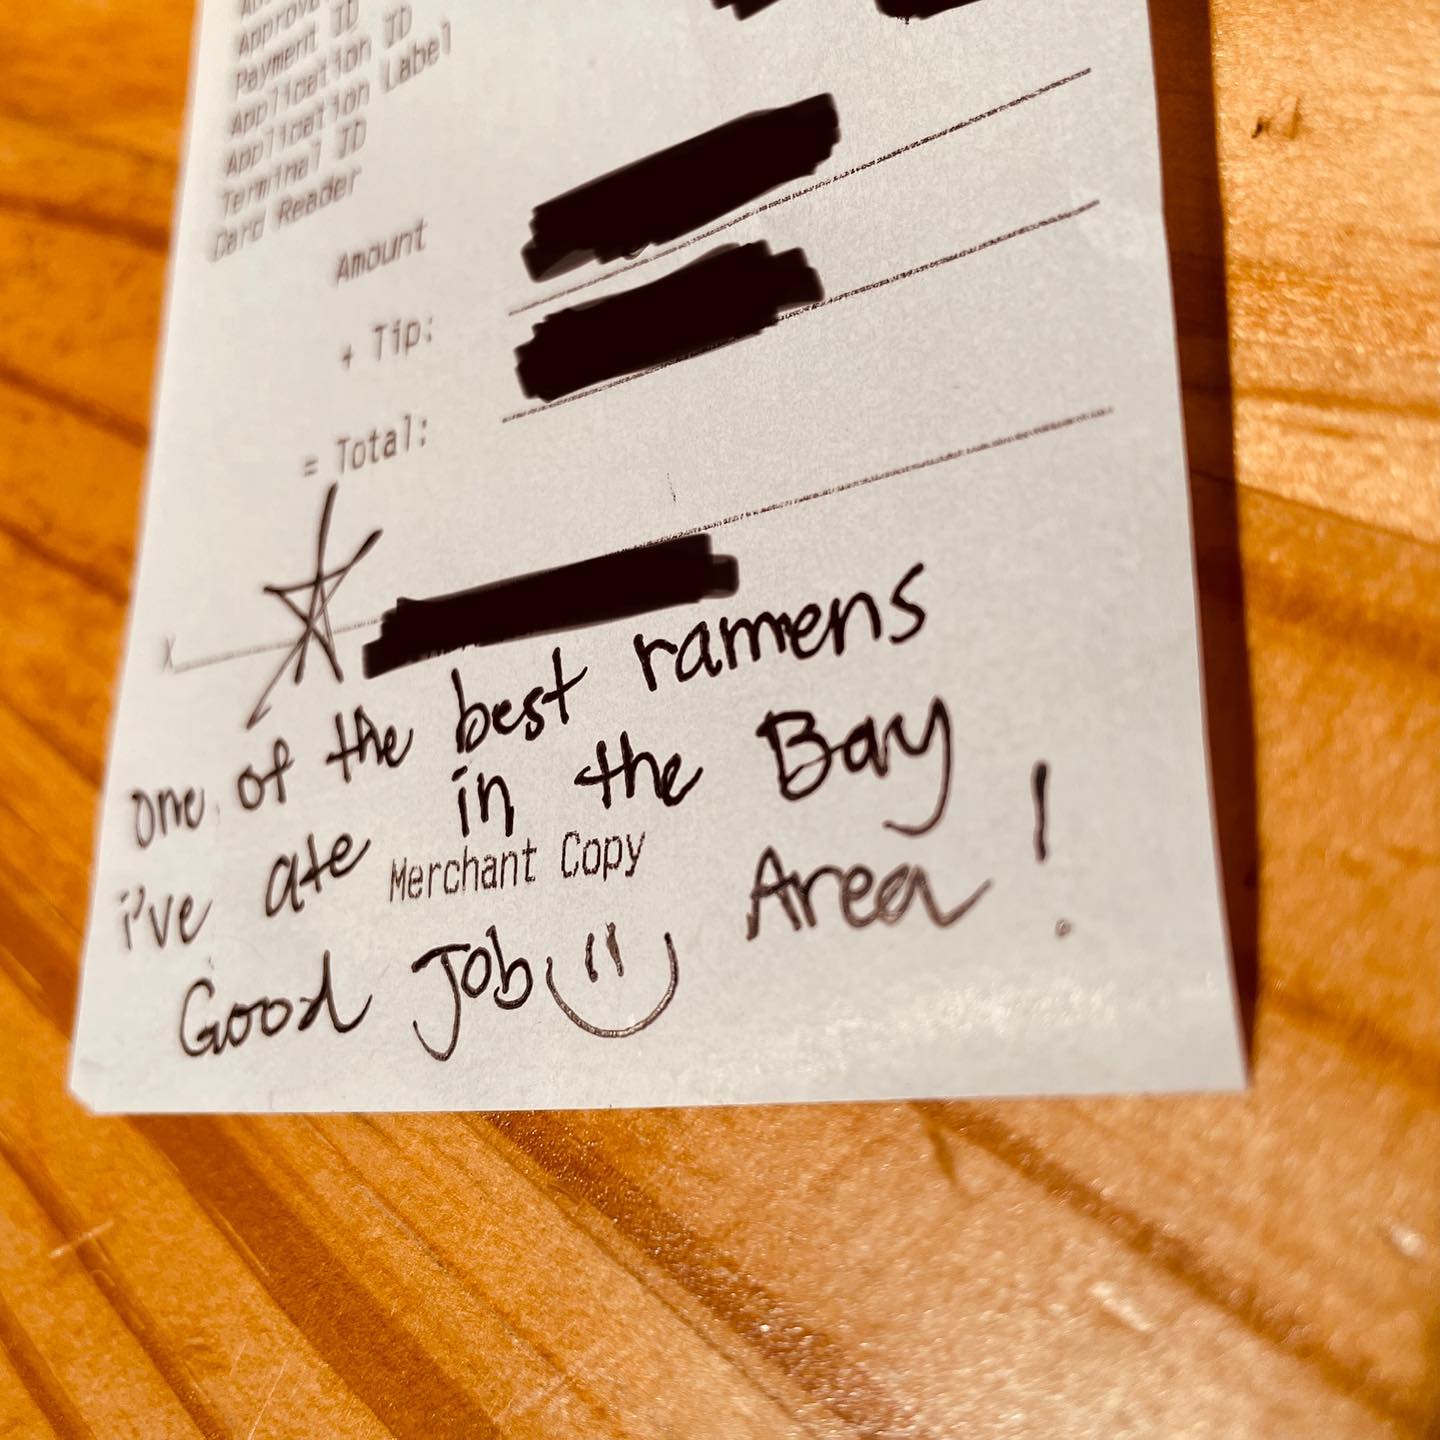 Approve
Payment ID
Application ID
Application Label
Terminal ID
Card Reader
Amount
+ Tip:
= Total:
X
one of the best ramens
i've ate in the Bay
Area!
Merchant Copy
Good Job